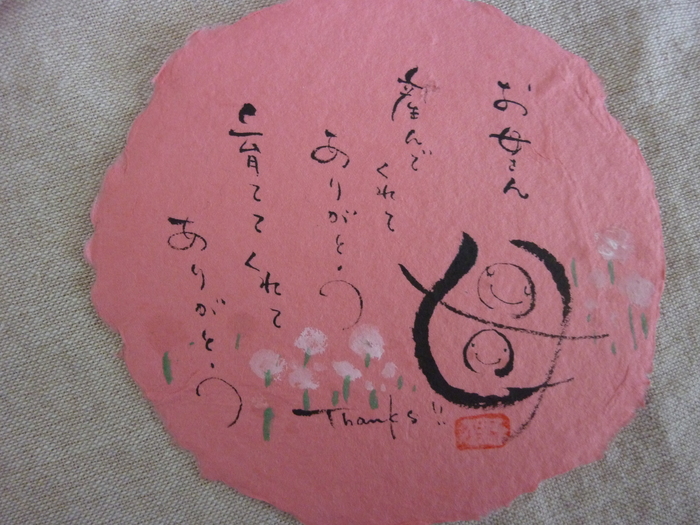 お母さん
産んで
くれて
ありがとう
育ててくれて
ありがとう
母
Thanks!!